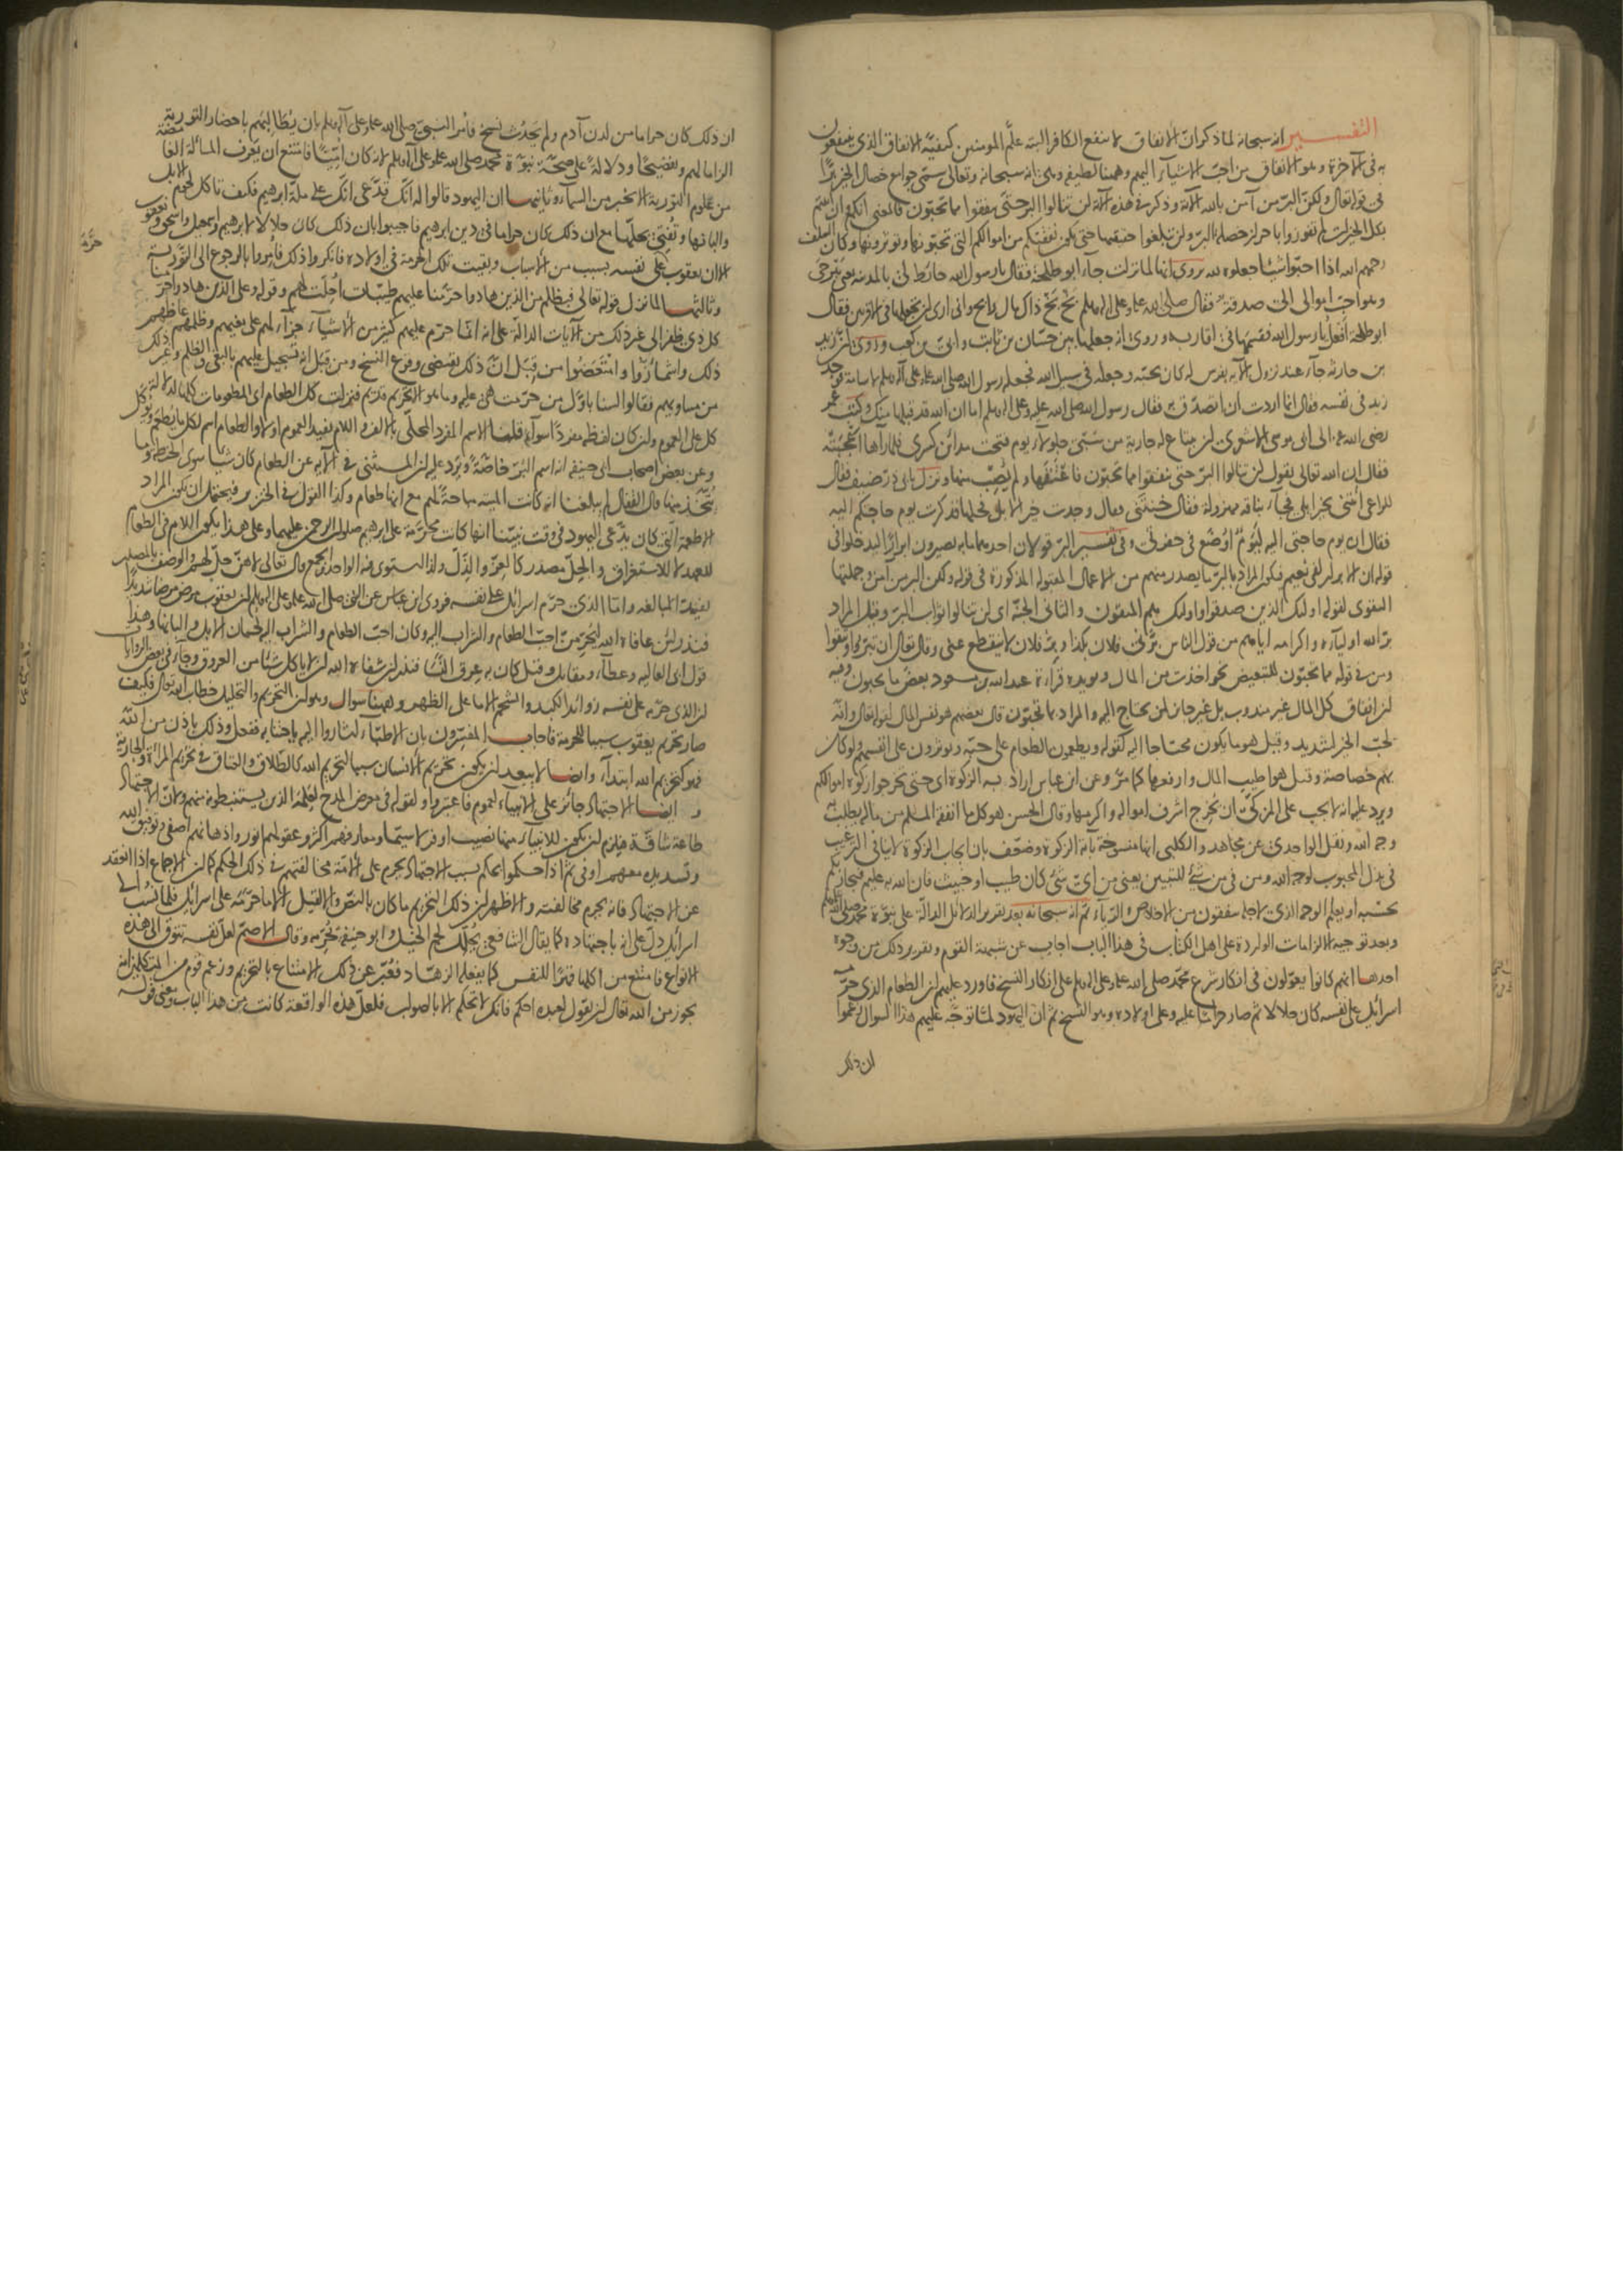 التفسير انه سبحانه لما ذكر ان الانفاق لا ينفع الكافر البتة علم المومنين كيفية الانفاق الذي ينتفعون
به في الآخرة وهو الانفاق من احب الاشياء اليهم وههنا لطيفة وهي انه سبحانه وتعالى سمى جوامع خصال الخير برا
في قوله تعالى ولكن البر من آمن بالله الآية وذكر في هذه الآية لن تنالوا البر حتى تنفقوا مما تحبون فالمعنى انكم وان اتيتم
بكل الخيرات لم تفوزوا باحراز خصلة البر ولن تبلغوا حقيقتها حتى تكون نفقتكم من اموالكم التي تحبونها وتوثرونها وكان السلف
رحمهم الله اذا احبوا شيئا جعلوه لله يروى انها لما نزلت جاء ابو طلحة فقال يا رسول الله حائط لي بالمدينة يعني بيرحى
وهو احب اموالي الي صدقة فقال صلى الله عليه وعلى اله وسلم بخ بخ ذاك مال رابح واني ارى ان تجعلها في الاقربين فقال
ابو طلحة افعل يا رسول الله فقسمها في اقاربه وروي انه جعلها بين حسان بن ثابت وابي بن كعب وروي ان زيد
بن حارثة جاء عند نزول الآية بفرس له كان يحبه وجعله في سبيل الله فجعله رسول الله صلى الله عليه وعلى آله وسلم لاسامة فوجد
زيد في نفسه فقال انما اردت ان اتصدق به فقال رسول الله صلى الله عليه وعلى اله وسلم اما ان الله قد قبلها منك وكتب عمر
رضي الله عنه الى ابي موسى الاشعري ان يبتاع له جارية من سبي جلولاء يوم فتحت مدائن كسرى فلما رآها اعجبته
فقال ان الله تعالى يقول لن تنالوا البر حتى تنفقوا مما تحبون فاعتقها ولم يصب منها ونزل بابي ذر ضيف فقال
للراعي ائتني بخير ابلي فجاء بناقة مهزولة فقال خنتني فقال وجدت خير الابل فحلها فذكرت يوم حاجتكم اليه
فقال ان يوم حاجتي اليه ليوم اوضع في حفرتي وفي تفسير البر قولان احدهما ما به يصيرون ابرارا ليدخلوا في
قوله ان الابرار لفي نعيم فيكون المراد بالبر ما يصدر منهم من الاعمال المقبولة المذكورة في قوله ولكن البر من آمن وجملتها
التقوى لقوله اولئك الذين صدقوا واولئك هم المتقون والثاني الجنة اي لن تنالوا ثواب البر وقيل المراد
بر الله اولياءه واكرامه اياهم من قول الناس برني فلان بكذا وبر فلان لا ينقطع عني وقال تعالى ان تبروا وتتقوا
ومن في قوله مما تحبون للتبعيض نحو اخذت من المال ويويده قراءة عبد الله بن مسعود بعض ما تحبون وفيه
ان انفاق كل المال غير مندوب بل غير جائز لمن يحتاج اليه والمراد بما تحبون قال بعضهم هو نفس المال لقوله تعالى وانه
لحب الخير لشديد وقيل هو ما يكون محتاجا اليه كقوله ويطعمون الطعام على حبه ويوثرون على انفسهم ولو كان
بهم خصاصة وقيل هو اطيب المال وارفعها كما مر وعن ابن عباس اراد به الزكوة اي حتى تخرجوا زكوة اموالكم
ويرد عليه انه لا يجب على المزكي ان يخرج اشرف امواله واكرمها وقال الحسن هو كل ما انفقه المسلم من ماله يطلب به
وجه الله ونقل الواحدي عن مجاهد والكلبي انها منسوخة بآية الزكوة وضعف بان ايجاب الزكوة لا ينافي الترغيب
في بذل المحبوب لوجه الله ومن في من شيء للتبيين يعني من اي شيء كان طيب او خبيث فان الله به عليم فيجازيكم
بحسبه او يعلم الوجه الذي لاجله تنفقون من الاخلاص والرياء ثم انه سبحانه بعد تقرير الدلائل الدالة على نبوة محمد صلى الله عليه وسلم
وبعد توجيه الالزامات الواردة على اهل الكتاب في هذا الباب اجاب عن شبهة القوم وتقرير ذلك من وجوه
احدها انهم كانوا يعولون في انكار شرع محمد صلى الله عليه وعلى اله وسلم على انكار النسخ فاورد عليهم ان الطعام الذي حرمه
اسرائيل على نفسه كان حلالا ثم صار حراما عليه وعلى اولاده وهو النسخ ثم ان اليهود لما توجه عليهم هذا السوال زعموا
ان ذلك
ان ذلك كان حراما من لدن آدم ولم يحدث نسخ فامر النبي صلى الله عليه وعلى آله وسلم بان يطالبهم باحضار التورية
الزاما لهم وتفضيحا ودلالة على صحة نبوة محمد صلى الله عليه وعلى آله وسلم لانه كان اميا فامتنع ان يعرف المسألة الغامضة
من علوم التورية الا بخبر من السماء وثانيها ان اليهود قالوا له انك تدعي انك على ملة ابرهيم فكيف تاكل لحوم الابل
والبانها وتفتي بحلها مع ان ذلك كان حراما في دين ابرهيم فاجيبوا بان ذلك كان حلالا لابرهيم واسمعيل واسحق ويعقوب
الا ان يعقوب على نفسه بسبب من الاسباب وبقيت تلك الحرمة في اولاده فانكروا ذلك فامروا بالرجوع الى التورية
حرمه
وثالثها لما نزل قوله تعالى فبظلم من الذين هادوا حرمنا عليهم طيبات احلت لهم وقوله وعلى الذين هادوا حرمنا
كل ذي ظفر الى غير ذلك من الآيات الدالة على انه انما حرم عليهم كثير من الاشياء جزاء لهم على بغيهم وظلمهم غاظهم
ذلك واشمأزوا وامتعضوا من قبل ان ذلك يقتضي وقوع النسخ ومن قبل انه تسجيل عليهم بالبغي والظلم وغير ذلك
من مساويهم فقالوا لسنا باول من حرمت هي عليه وما هو الا تحريم قديم فنزلت كل الطعام اي المطعومات كلها لدلالة
كل على العموم وان كان لفظه مفردا سواء قلنا الاسم المفرد المحلى بالالف واللام يفيد العموم او لا والطعام اسم لكل ما يطعم ويوكل
وعن بعض اصحاب ابي حنيفة انه اسم البر خاصة ويرد عليه ان المستثنى في الآية عن الطعام كان شيئا سوى الحنطة وما
يتخذ منها قال القفال لم يبلغنا انه كانت الميتة مباحة لهم مع انها طعام وكذا القول في الخنزير فيحتمل ان يكون المراد
الاطعمة التي كان يدعي اليهود في وقت نبينا انها كانت محرمة على ابرهيم صلوات الرحمن عليهما وعلى هذا يكون اللام في الطعام
للعهد لا للاستغراق والحل مصدر كالعز والذل ولذا استوى فيه الواحد والجمع قال تعالى لا هن حل لهم والوصف بالمصدر
يفيد المبالغة واما الذي حرم اسرائيل على نفسه فروى ابن عباس عن النبي صلى الله عليه وعلى اله وسلم ان يعقوب مرض مرضا شديدا
فنذر لئن عافاه الله ليحرمن احب الطعام والشراب اليه وكان احب الطعام والشراب اليه لحمان الابل والبانها وهذا
قول ابي العالية وعطاء ومقاتل وقيل كان به عرق النسا فنذر ان شفاه الله ان لا ياكل شيئا من العروق وجاء في بعض الروايات
ان الذي حرمه على نفسه زوائد الكبد والشحم الا ما على الظهر وههنا سوال وهو ان التحريم والتحليل خطاب الله تعالى فكيف
صار تحريم يعقوب سببا للحرمة فاجاب المفسرون بان الاطباء اشاروا اليه باجتنابه ففعل وذلك باذن من الله
فهو كتحريم الله ابتداء وايضا لا يبعد ان يكون تحريم الانسان سببا لتحريم الله كالطلاق والعتاق في تحريم المراة والجارية
و ايضا الاجتهاد جائز على الانبياء لعموم فاعتبروا ولقوله في معرض المدح لعلمه الذين يستنبطونه منهم ولان الاجتهاد
طاعة شاقة فيلزم ان يكون للانبياء منها نصيب اوفر لا سيما ومعارفهم اكثر وعقولهم انور واذهانهم اصفى وتوفيق الله
وتسديده معهم اوفى ثم اذا حكموا بحكم بسبب الاجتهاد يحرم على الامة مخالفتهم في ذلك الحكم كما ان الاجماع اذا انعقد
عن الاجتهاد فانه يحرم مخالفته والاظهر ان ذلك التحريم ما كان بالنص والا لقيل الا ما حرمه على اسرائيل فلما نسب الى
اسرائيل دل على انه باجتهاده كما يقال الشافعي يحلل لحم الخيل وابو حنيفة يحرمه وقال الاصم لعل نفسه تتوق الى هذه
الانواع فامتنع من اكلها قهرا للنفس كما يفعله الزهاد فعبر عن ذلك الامتناع بالتحريم وزعم قوم من المتكلمين انه
يجوز من الله تعالى ان يقول لعبده احكم فانك لا تحكم الا بالصواب فلعل هذه الواقعة كانت من هذا الباب ومعنى قوله